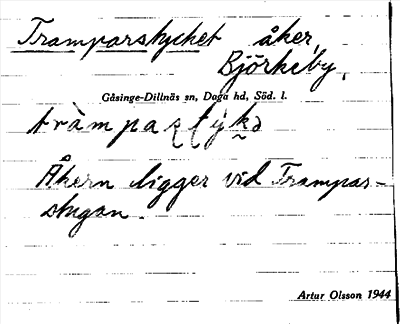 Tramparstycket åker,
Björkeby,
Gåsinge-Dillnäs sn, Daga hd, Söd. l.
Åkern ligger vid Trampar-
stugan.
Artur Olsson 1944